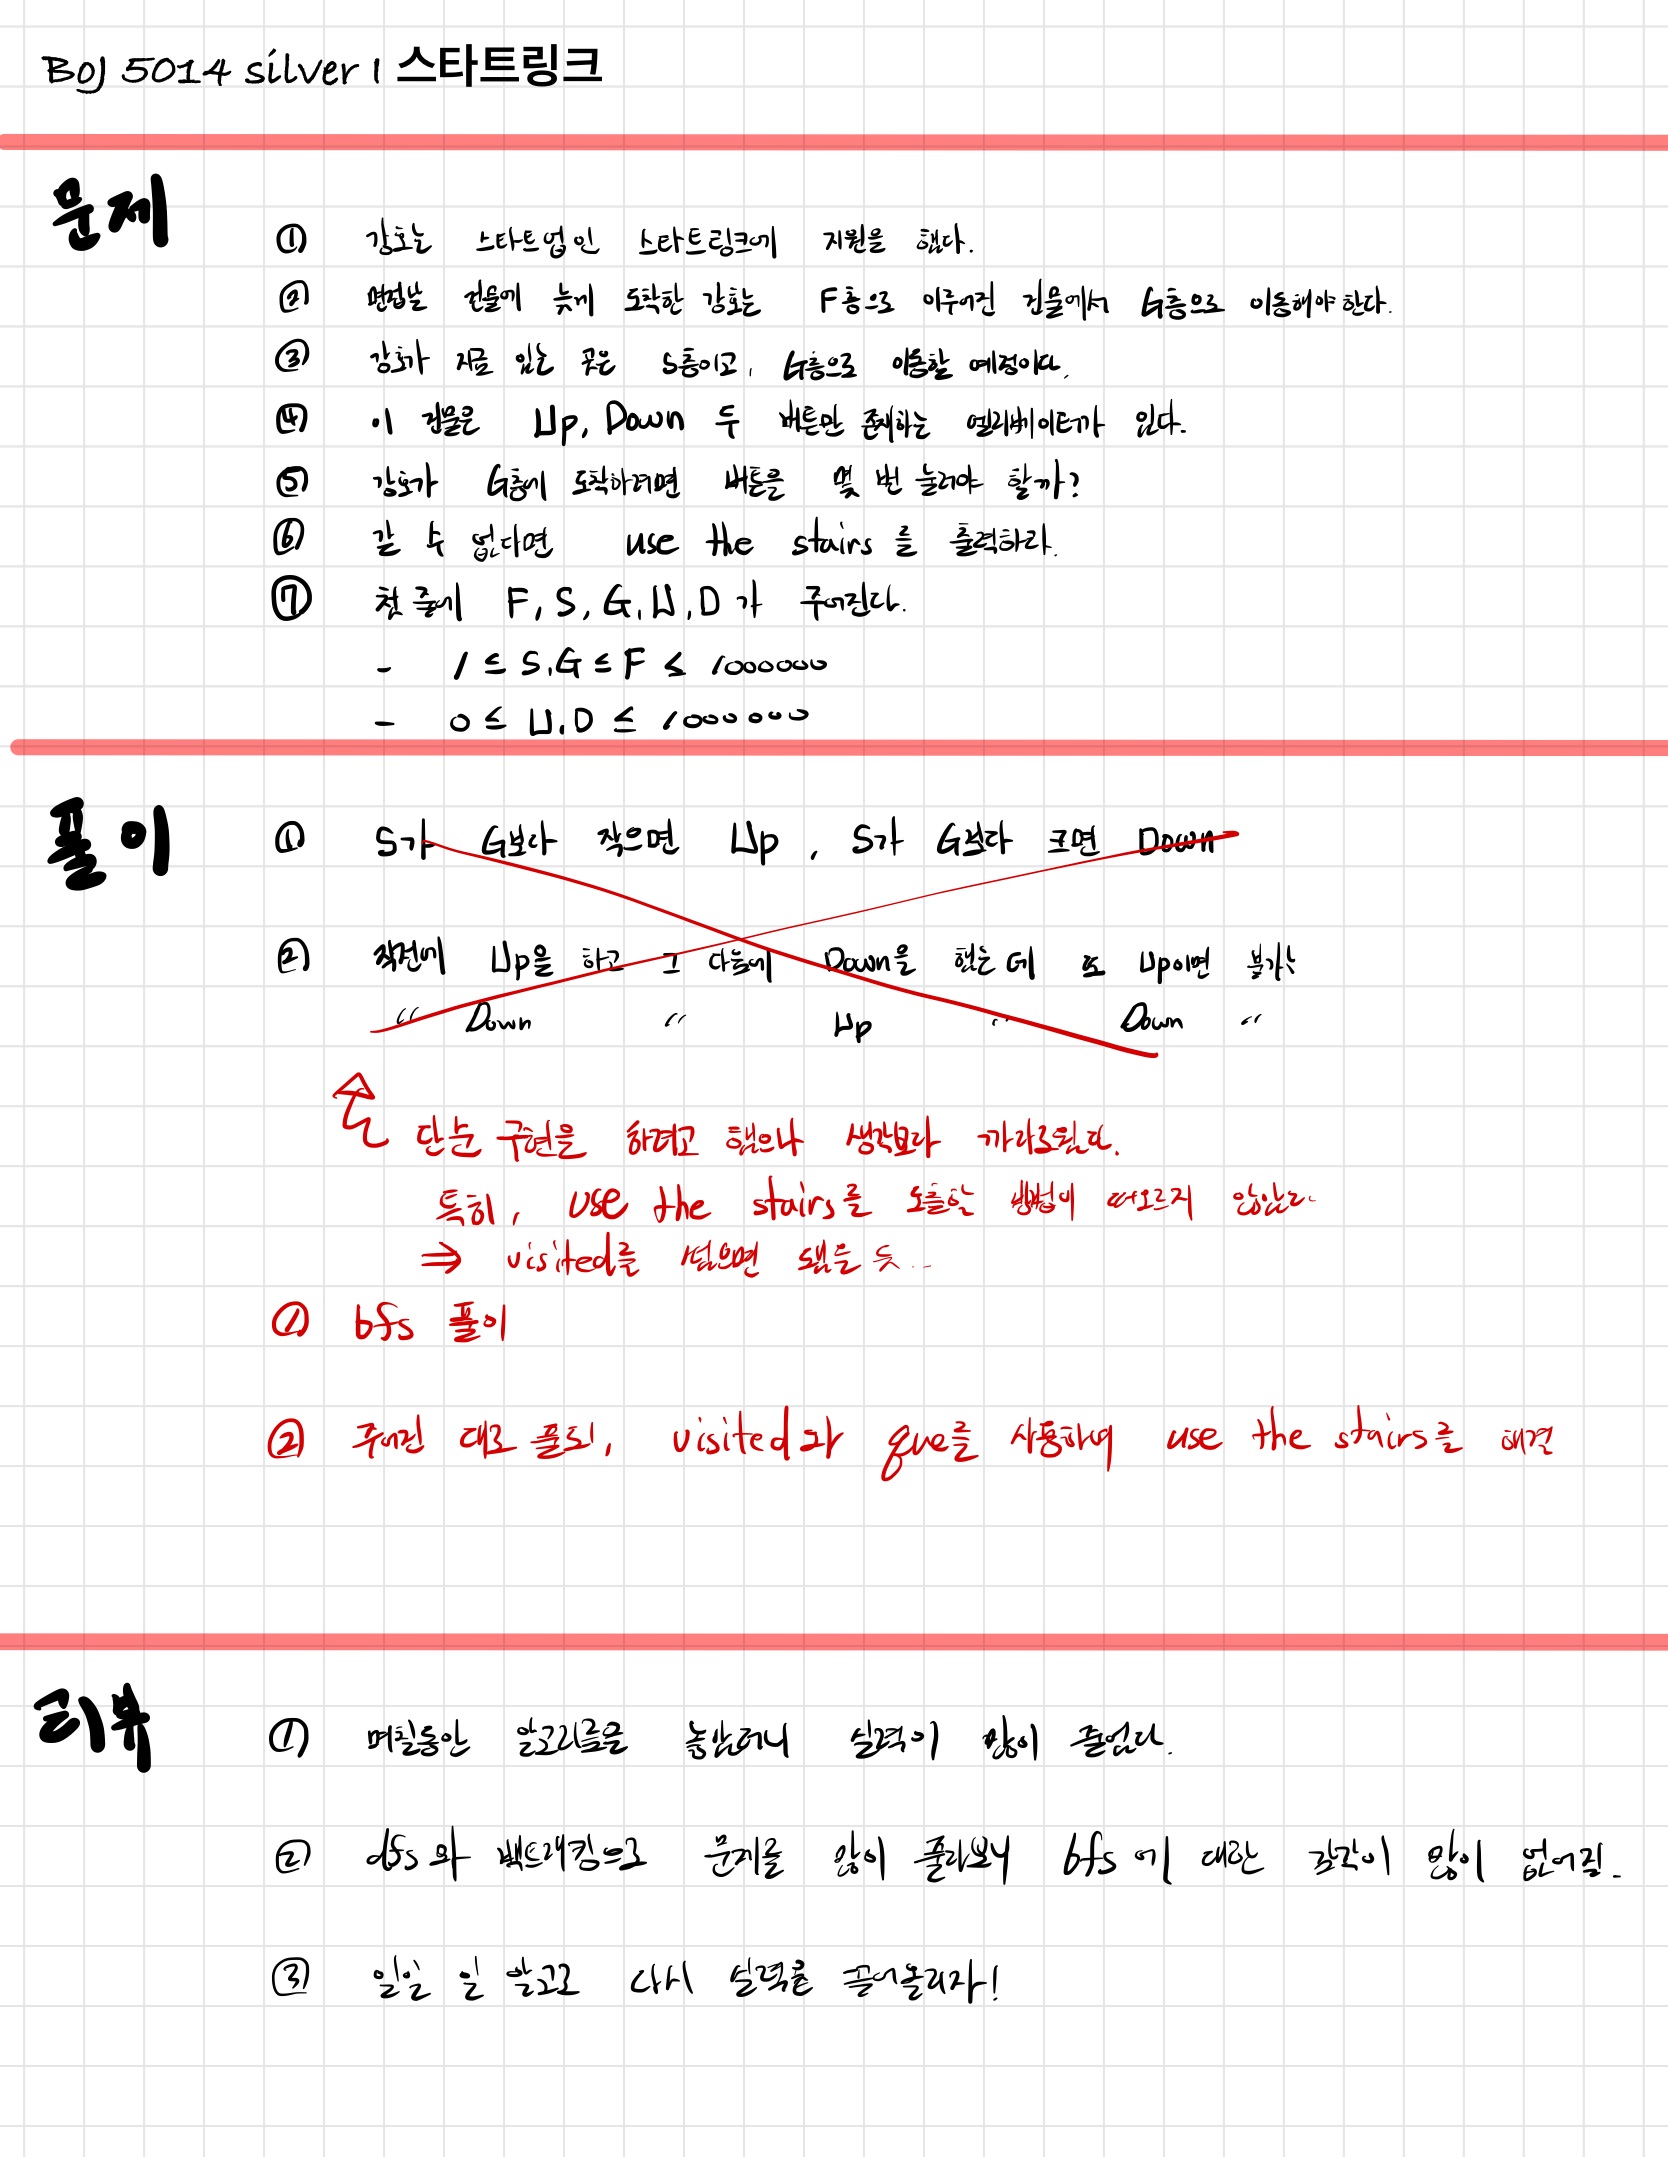 BOJ 5014 silver 1 스타트링크
문제
① 강호는 스타트업인 스타트링크에 지원을 했다.
② 면접날 건물에 늦게 도착한 강호는 F층으로 이루어진 건물에서 G층으로 이동해야 한다.
③ 강호가 지금 있는 곳은 S층이고, G층으로 이동할 예정이다.
④ 이 건물은 Up, Down 두 버튼만 존재하는 엘리베이터가 있다.
⑤ 강호가 G층에 도착하려면 버튼을 몇 번 눌러야 할까?
⑥ 갈 수 없다면 use the stairs를 출력하라.
⑦ 첫 줄에 F, S, G, U, D가 주어진다.
- 1 ≤ S, G ≤ F ≤ 1000000
- 0 ≤ U, D ≤ 1000000
풀이
① S가 G보다 작으면 Up, S가 G보다 크면 Down
② 직전에 Up을 하고 그 다음에 Down을 했는데 또 Up이면 불가능
" Down " Up " Down "
단순 구현을 하려고 했으나 생각보다 까다로웠다.
특히, use the stairs를 도출할 방법이 떠오르지 않았다.
⇒ visited를 썼으면 됐을 듯..
① bfs 풀이
② 주어진 대로 풀되, visited와 que를 사용하여 use the stairs를 해결
리뷰
① 며칠동안 알고리즘을 놓았더니 실력이 많이 줄었다.
② dfs와 백트래킹으로 문제를 많이 풀다보니 bfs에 대한 감각이 많이 없어짐.
③ 일일 일 알고로 다시 실력을 끌어올리자!